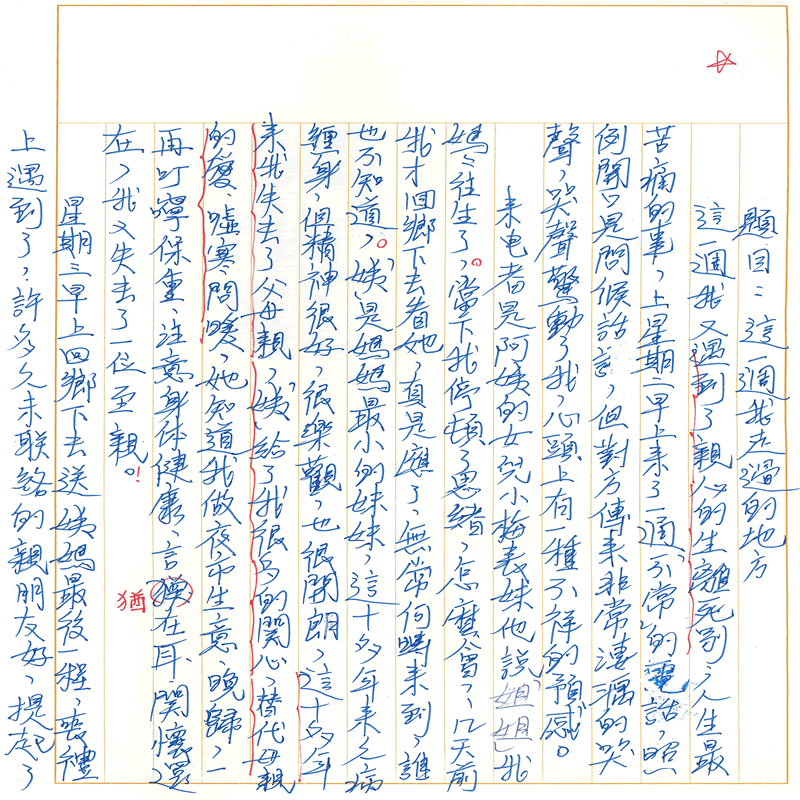 題目：這一週我走過的地方
這一週我又遇到了親人的生離死別，人生最
苦痛的事，上星期二早上來了一通“不常”的電話，照
例開口是問候話言，但對方傳來非常淒溼的哭
聲，哭聲驚動了我，心頭上有一種不祥的預感。
來电者是阿姨的女兒小梅表妹他說「姐姐」我
媽媽往生了。當下我停頓了思緒，怎麼會，几天前
我才回鄉下去看她，真是應了，無常何時來到，誰
也不知道。“姨”是媽媽最小的妹妹，這十多年來久病
纏身，但精神很好，很樂觀，也很開朗，這十多年
來我失去了父母親，“姨”給了我很多的關心，替代母親
的愛，噓寒問暖，她知道我做夜市生意，晚歸，一
再叮嚀保重，注意身体健康，言猶在耳，關懷還
猶
在，我又失去了一位至親。！
星期三早上回鄉下去送姨媽最後一程，喪禮
上遇到了，許多久未联絡的親朋友好，提起了